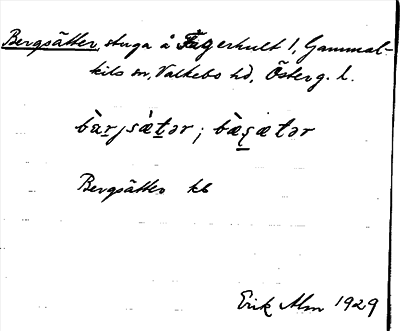 Bergsätter, stuga å Fagerhult 1, Gammal-
kils sn, Valkebo hd, Österg. l.
bàr̠jsætər; bæ̀ʂætər
Bergsätter kb
Erik Alm 1929